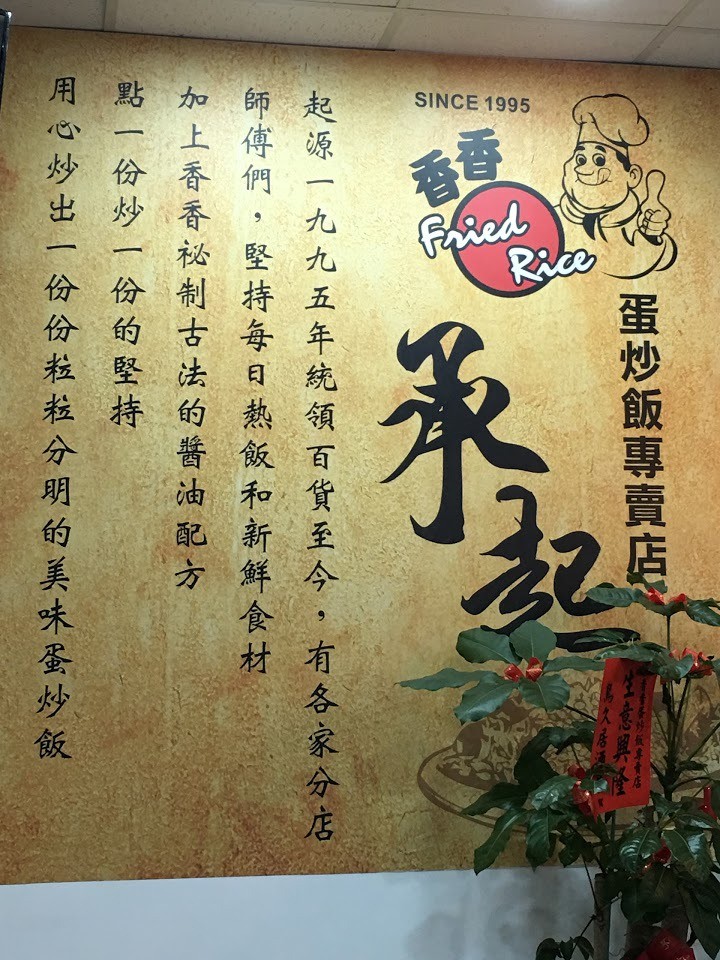 SINCE 1995
香香
Fried
Rice
蛋炒飯專賣店
承起
起源一九九五年統領百貨至今，有各家分店
師傅們，堅持每日熱飯和新鮮食材
加上香香祕制古法的醬油配方
點一份炒一份的堅持
用心炒出一份份粒粒分明的美味蛋炒飯
炒飯專賣店
生意興隆
久居酒